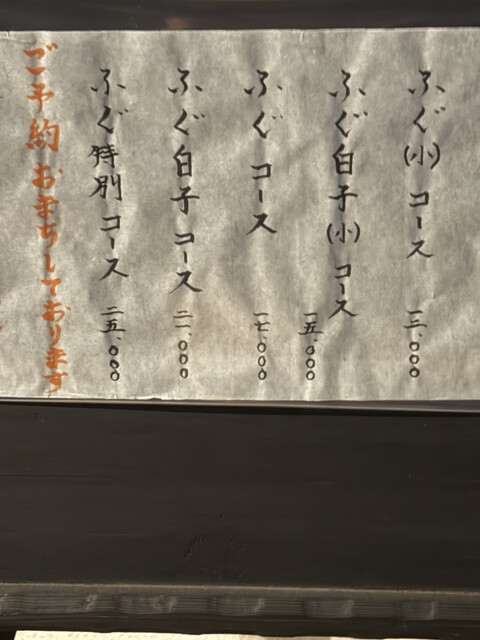 ふぐ(小)コース 一三,000
ふぐ白子(小)コース 一五,000
ふぐコース 一七,000
ふぐ白子コース 二一,000
ふぐ特別コース 二五,000
ご予約おまちしております